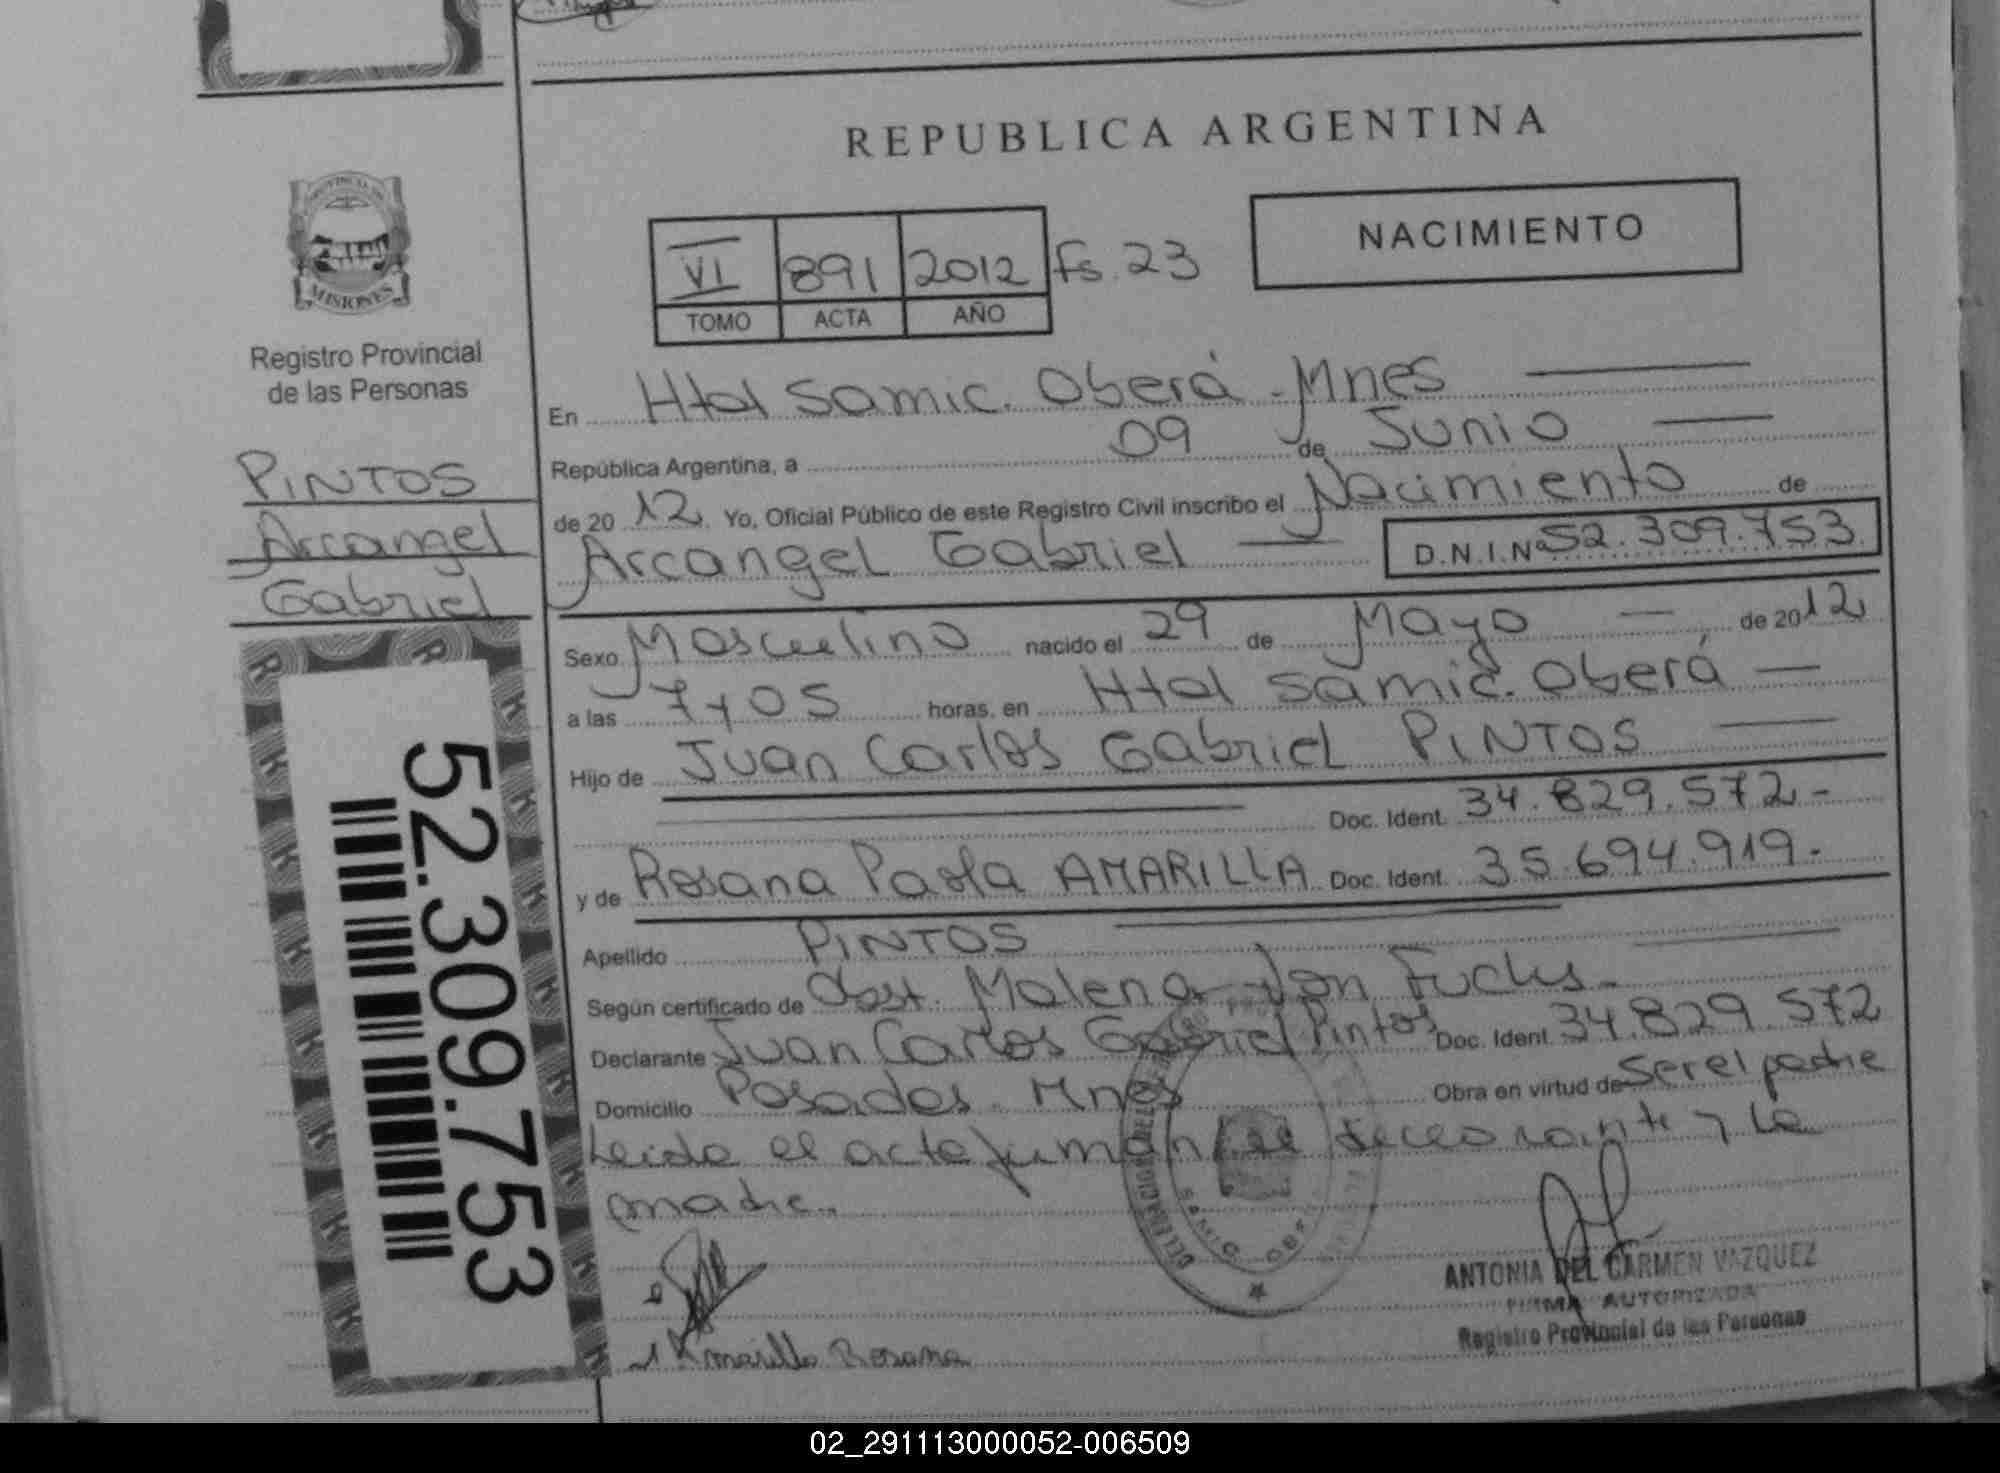 REPUBLICA ARGENTINA
NACIMIENTO
VI 891 2012 Fs. 23
TOMO ACTA AÑO
PROVINCIA DE
MISIONES
Registro Provincial
de las Personas
PINTOS
Arcangel
Gabriel
52.309.753
En Htal Samic. Oberá - Mnes
República Argentina, a 09 de Junio
de 20 12. Yo, Oficial Público de este Registro Civil inscribo el Nacimiento de
Arcangel Gabriel D.N.I.Nº 52.309.753
Sexo Masculino nacido el 29 de Mayo, de 2012
a las 7 y 05 horas, en Htal Samic. Oberá
Hijo de Juan Carlos Gabriel PINTOS
Doc. Ident. 34.829.572.-
y de Rosana Paola AMARILLA Doc. Ident. 35.694.919.-
Apellido PINTOS
Según certificado de Obst. Malena Von Fuchs.
Declarante Juan Carlos Gabriel Pintos Doc. Ident. 34.829.572
Domicilio Posadas - Mnes Obra en virtud de ser el padre
Leida el acta firman el declarante y la
madre.
ANTONIA DEL CARMEN VAZQUEZ
FIRMA AUTORIZADA
Registro Provincial de las Personas
Amarilla Rosana
02_291113000052-006509